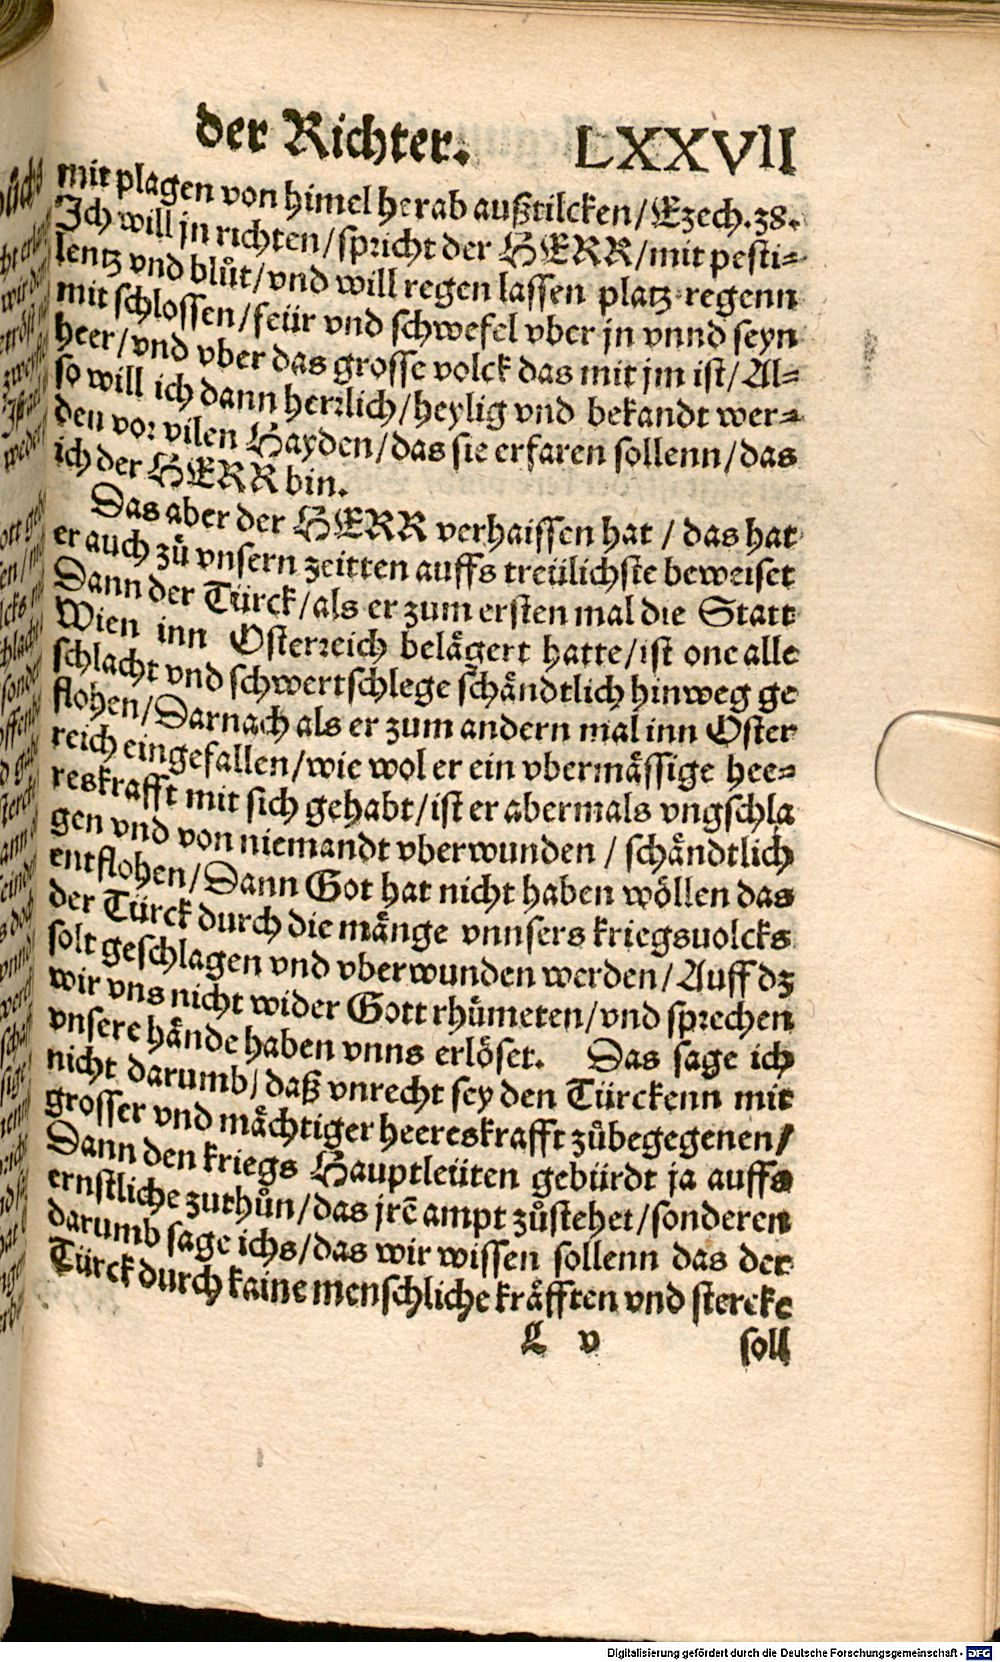 der Richter. LXXVII
mit plagen von himel herab außtilcken/ Ezech. 38.
Ich will jn richten/ spricht der HERR/ mit pesti-
lentz vnd blůt/ vnd will regen lassen platz regenn
mit schlossen/ feür vnd schwefel vber jn vnnd seyn
heer/ vnd vber das grosse volck das mit jm ist/ Al-
so will ich dann herrlich/ heylig vnd bekandt wer-
den vor vilen Hayden/ das sie erfaren sollenn/ das
ich der HERR bin.
Das aber der HERR verhaissen hat / das hat
er auch zů vnsern zeitten auffs treülichste beweiset
Dann der Türck/ als er zum ersten mal die Statt
Wien inn Osterreich belågert hatte/ ist one alle
schlacht vnd schwertschlege schåndtlich hinweg ge
flohen/ Darnach als er zum andern mal inn Oster
reich eingefallen/ wie wol er ein vbermåssige hee-
reskrafft mit sich gehabt/ ist er abermals vngschla
gen vnd von niemandt vberwunden / schåndtlich
entflohen/ Dann Got hat nicht haben wöllen das
der Türck durch die månge vnnsers kriegsuolcks
solt geschlagen vnd vberwunden werden/ Auff dz
wir vns nicht wider Gott rhümeten/ vnd sprechen
vnsere hånde haben vnns erlöset. Das sage ich
nicht darumb/ daß vnrecht sey den Türckenn mit
grosser vnd måchtiger heereskrafft zůbegegenen/
Dann den kriegs Hauptleüten gebürdt ja auffs
ernstliche zuthůn/ das jrē ampt zůstehet/ sonderen
darumb sage ichs/ das wir wissen sollenn das der
Türck durch kaine menschliche kråfften vnd stercke
L v soll
Digitalisierung gefördert durch die Deutsche Forschungsgemeinschaft - DFG